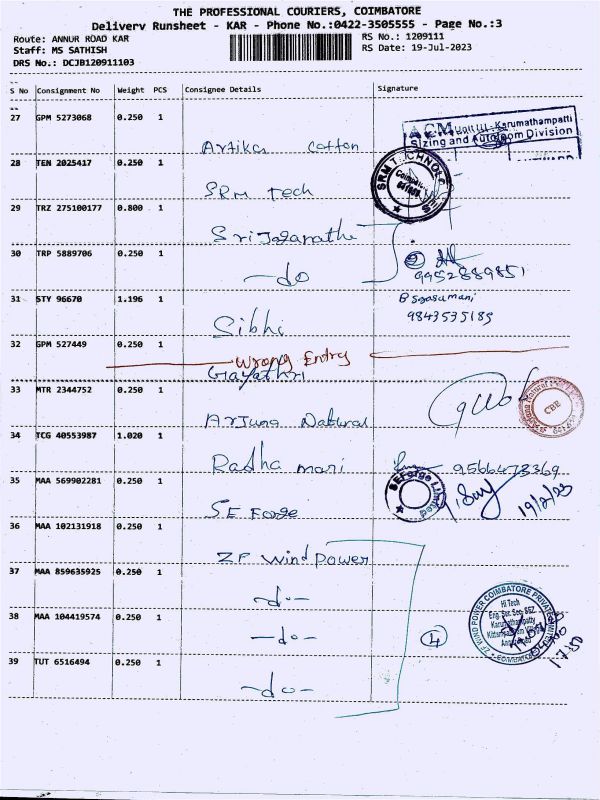 THE PROFESSIONAL COURIERS, COIMBATORE
Delivery Runsheet - KAR - Phone No.:0422-3505555 - Page No.:3
Route: ANNUR ROAD KAR
RS No.: 1209111
Staff: MS SATHISH
RS Date: 19-Jul-2023
DRS No.: DCJB120911103
S No Consignment No Weight PCS Consignee Details Signature
27 GPM 5273068 0.250 1
Artika Cotton
ACM Unit III - Karumathampatti
Sizing and Autoloom Division
28 TEN 2025417 0.250 1
SRM Tech
SRM TECHNOLOGIES
29 TRZ 275100177 0.800 1
Sri Jagannathe
30 TRP 5889706 0.250 1
-do
9952889851
31 STY 96670 1.196 1
Sibhi
9843535189
32 GPM 527449 0.250 1
Wrong Entry
Gayathri
33 MTR 2344752 0.250 1
Arjuna Natural
CBE
34 TCG 40553987 1.020 1
Radha mani
9566473369
35 MAA 569902281 0.250 1
SE Forge
SEForge Limited
19/2/23
36 MAA 102131918 0.250 1
ZF Wind Power
37 MAA 859635925 0.250 1
-do-
38 MAA 104419574 0.250 1
-do-
4
ZF WIND POWER COIMBATORE PRIVATE LIMITED
Hi Tech
Eng. Ser. Sec. SEZ
Karumathampatty
39 TUT 6516494 0.250 1
-do-